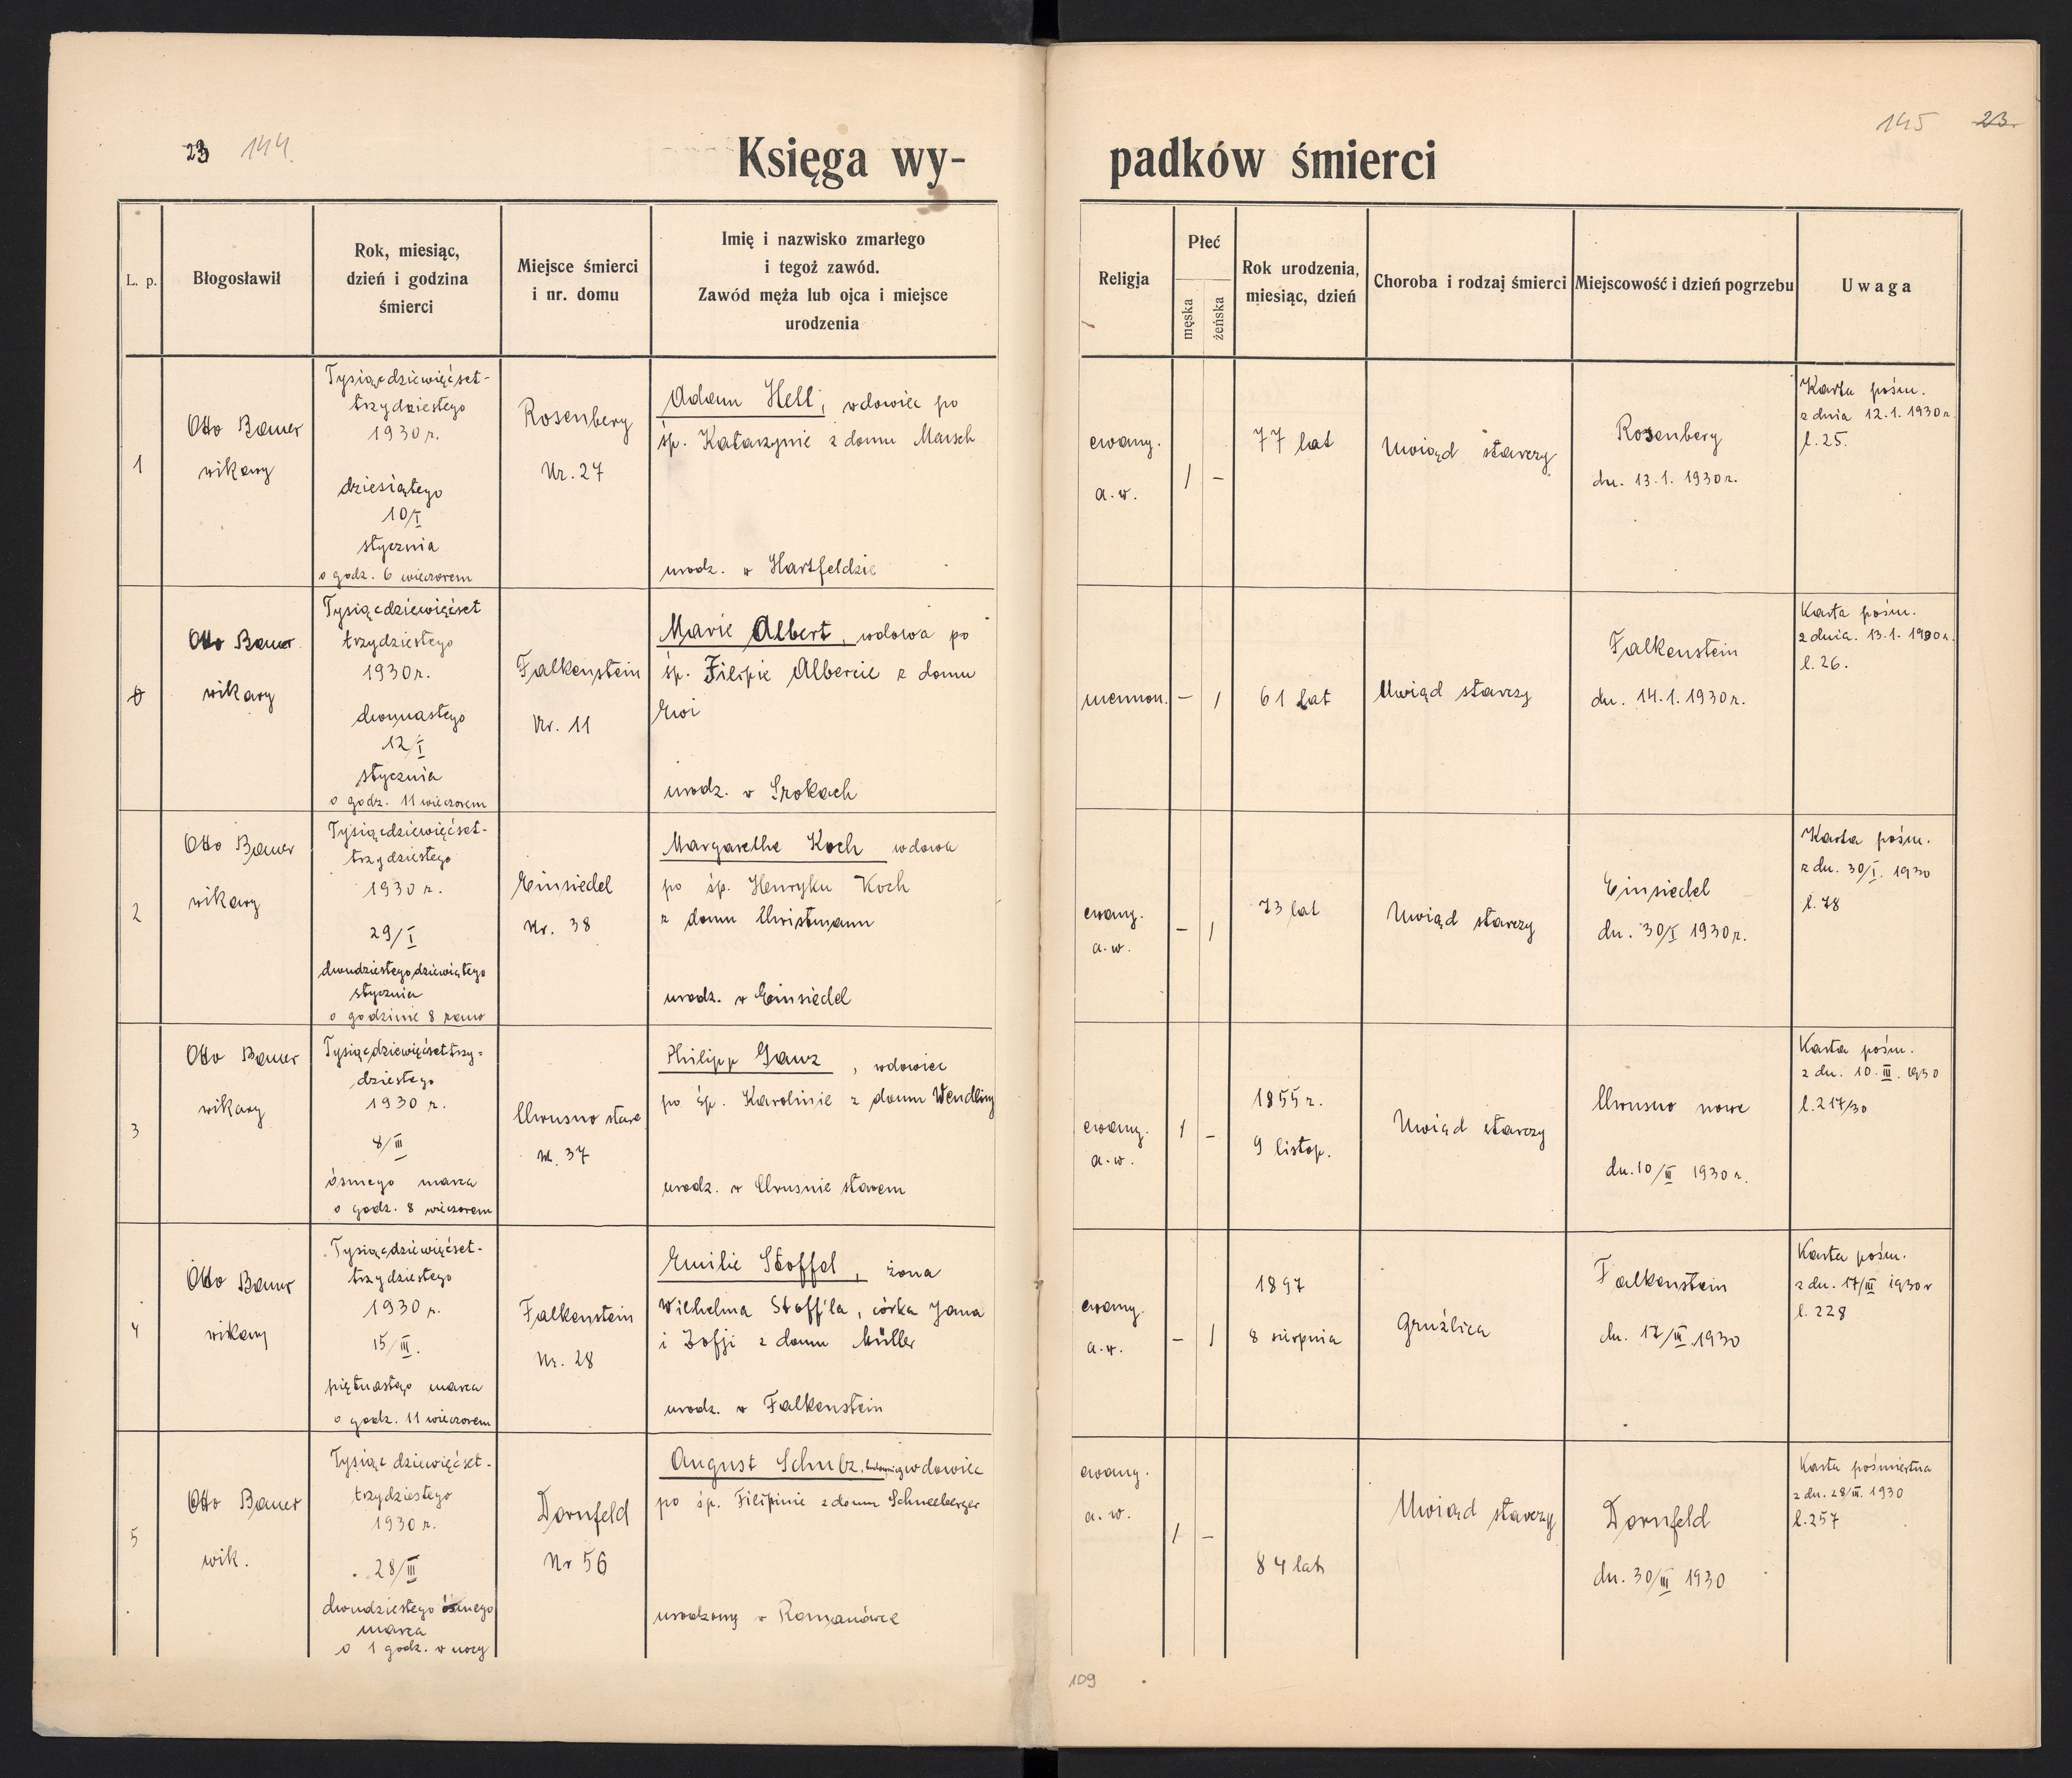 23 144.
Księga wy-
padków śmierci
145 23.
L. p.
Błogosławił
Rok, miesiąc,
dzień i godzina
śmierci
Miejsce śmierci
i nr. domu
Imię i nazwisko zmarłego
i tegoż zawód.
Zawód męża lub ojca i miejsce
urodzenia
Religja
Płeć
męska
żeńska
Rok urodzenia,
miesiąc, dzień
Choroba i rodzaj śmierci
Miejscowość i dzień pogrzebu
Uwaga
1
Otto Bauer
wikary
Tysiącdziewięćset-
trzydziestego
1930 r.
dziesiątego
10/I
stycznia
o godz. 6 wieczorem
Rosenberg
Nr. 27
Adam Hell, wdowiec po
śp. Katarzynie z domu Mansch
urodz. w Hartfeldzie
ewang.
a. w.
/ -
77 lat
Uwiąd starczy
Rosenberg
dn. 13.1. 1930 r.
Karta pośm.
z dnia 12.1.1930 r.
l. 25.
0
Otto Bauer
wikary
Tysiącdziewięćset
trzydziestego
1930 r.
dwunastego
12/I
stycznia
o godz. 11 wieczorem
Falkenstein
Nr. 11
Marie Albert, wdowa po
śp. Filipie Albercie z domu
Ewi
urodz. w
mennon.
- /
61 lat
Uwiąd starczy
Falkenstein
dn. 14.1. 1930 r.
Karta pośm.
z dnia. 13.1. 1930 r.
l. 26.
2
Otto Bauer
wikary
Tysiącdziewięćset-
trzydziestego
1930 r.
29/I
dwudziestego dziewiątego
stycznia
o godzinie 8 rano
Einsiedel
Nr. 38
Margarethe Koch wdowa
po śp. Henryku Koch
z domu Christmann
urodz. w Einsiedel
ewang.
a. w.
- /
73 lat
Uwiąd starczy
Einsiedel
dn. 30/I 1930 r.
Karta pośm.
z dn. 30/I. 1930
l. 78
3
Otto Bauer
wikary
Tysiącdziewięćsettrzy-
dziestego
1930 r.
8/III
ósmego marca
o godz. 8 wieczorem
Chrusno stare
Nr. 37
Philipp Ganz, wdowiec
po śp. Karolinie z domu Wendling
urodz. w Chrusnie starem
ewang.
a. w.
/ -
1855 r.
9 listop.
Uwiąd starczy
Chrusno nowe
dn. 10/III 1930 r.
Karta pośm.
z dn. 10. III. 1930
l. 217/30
4
Otto Bauer
wikary
Tysiącdziewięćset-
trzydziestego
1930 r.
15/III.
piętnastego marca
o godz. 11 wieczorem
Falkenstein
Nr. 28
Emilie Stoffel, żona
Wilhelma Stoff'la, córka Jana
i Zofji z domu Müller
urodz. w Falkenstein
ewang.
a. w.
- /
1897
8 sierpnia
Gruźlica
Falkenstein
dn. 17/III.1930
Karta pośm.
z dn. 17/III 1930 r
l. 228
5
Otto Bauer
wik.
Tysiąc dziewięćset-
trzydziestego
1930 r.
28/III
dwudziestego ósmego
marca
o 1 godz. w nocy
Dornfeld
Nr 56
August Schulz, wdowiec
po śp. Filipinie z domu Schneeberger
urodzony w Romanówce
ewang.
a. w.
/ -
84 lat
Uwiąd starczy
Dornfeld
dn. 30/III 1930
Karta pośmiertna
z dn. 28/III. 1930
l. 257
109